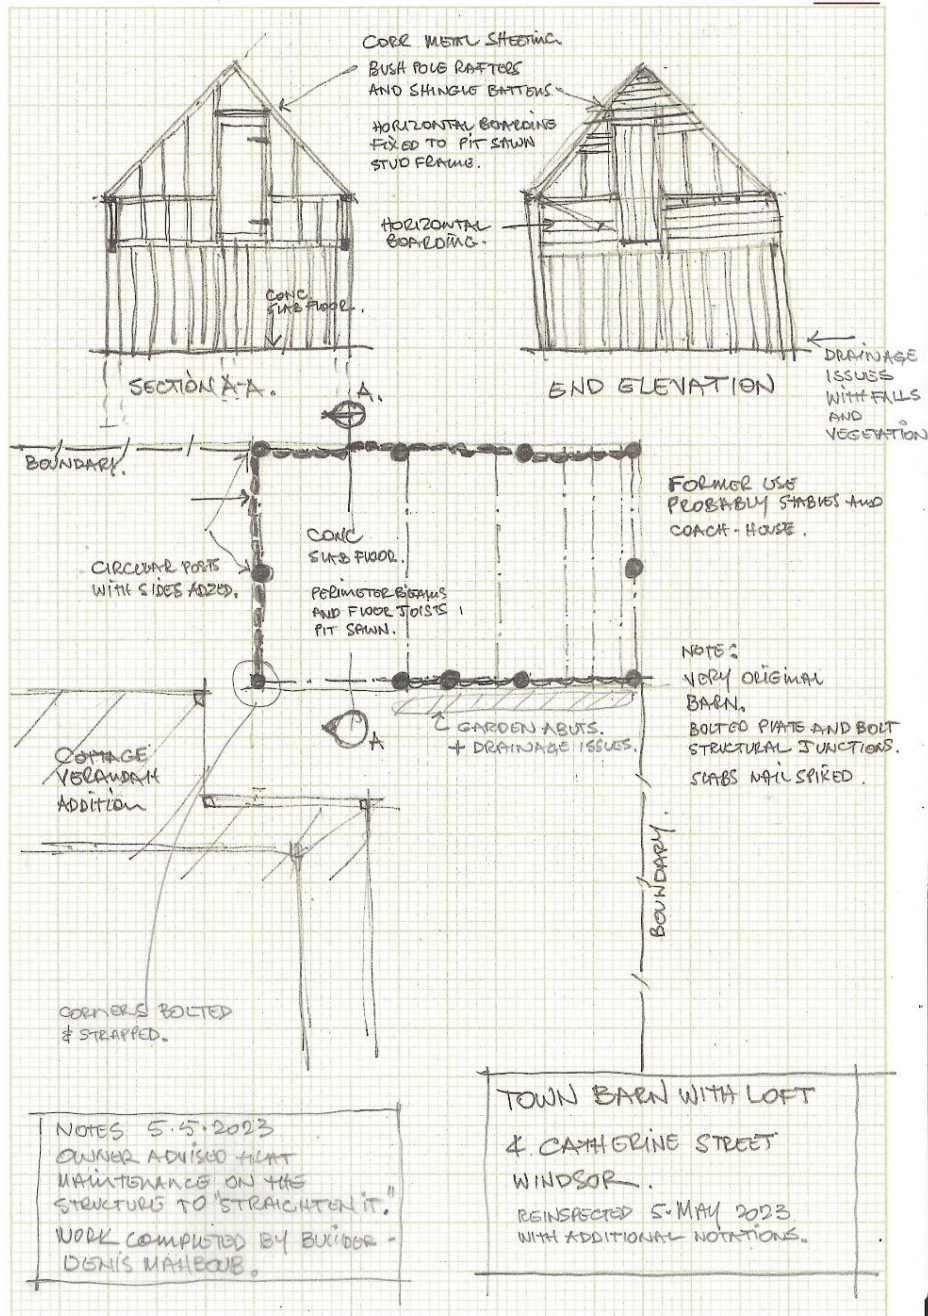 CORR METAL SHEETING.
BUSH POLE RAFTERS
AND SHINGLE BATTENS.
HORIZONTAL BOARDING
FIXED TO PIT SAWN
STUD FRAME.
HORIZONTAL
BOARDING.
CONC.
SLAB FLOOR.
SECTION A-A.
A.
END ELEVATION
DRAINAGE
ISSUES
WITH FALLS
AND
VEGETATION
BOUNDARY.
FORMER USE
PROBABLY STABLES AND
COACH-HOUSE.
CONC
SLAB FLOOR.
CIRCULAR POSTS
WITH SIDES ADZED.
PERIMETER BEAMS
AND FLOOR JOISTS
PIT SAWN.
NOTE:
VERY ORIGINAL
BARN.
BOLTED PLATE AND BOLT
STRUCTURAL JUNCTIONS.
SLABS NAIL SPIKED.
A
GARDEN ABUTS.
+ DRAINAGE ISSUES.
COTTAGE
VERANDAH
ADDITION
BOUNDARY.
CORNERS BOLTED
& STRAPPED.
NOTES 5.5.2023
OWNER ADVISED THAT
MAINTENANCE ON THE
STRUCTURE TO "STRAIGHTEN IT."
WORK COMPLETED BY BUILDER -
DENIS MAHBOUB.
TOWN BARN WITH LOFT
4 CATHERINE STREET
WINDSOR.
REINSPECTED 5.MAY 2023
WITH ADDITIONAL NOTATIONS.